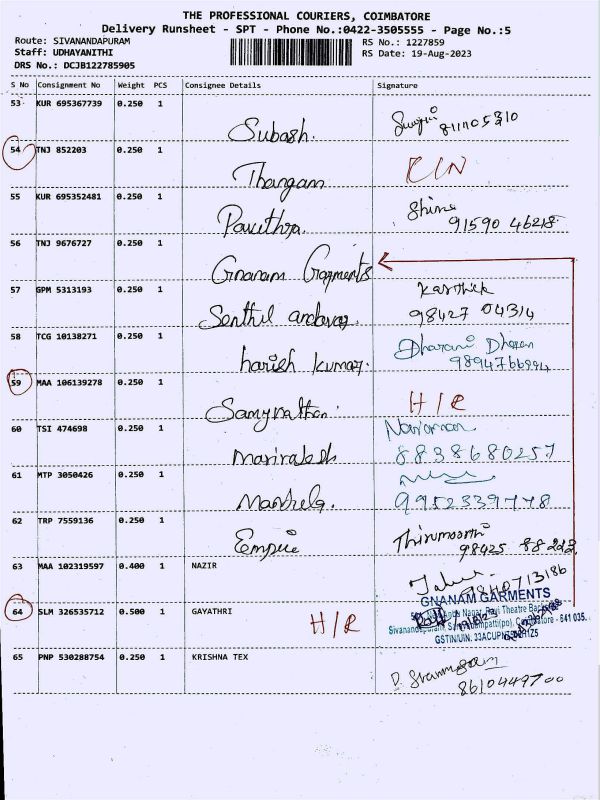 THE PROFESSIONAL COURIERS, COIMBATORE
Delivery Runsheet - SPT - Phone No.:0422-3505555 - Page No.:5
Route: SIVANANDAPURAM RS No.: 1227859
Staff: UDHAYANITHI RS Date: 19-Aug-2023
DRS No.: DCJB122785905
S No Consignment No Weight PCS Consignee Details Signature
53 KUR 695367739 0.250 1
Subash.
54 TNJ 852203 0.250 1
Thangam
55 KUR 695352481 0.250 1 Shine
Pavithra. 91590 46218
56 TNJ 9676727 0.250 1
Gnanam Garments
57 GPM 5313193 0.250 1 Karthick
Senthil andavar. 98427 04314
58 TCG 10138271 0.250 1 Dharani Dharan
harish kumar. 9894766994
59 MAA 106139278 0.250 1 H/R
Samynathan.
60 TSI 474698 0.250 1
8838680257
61 MTP 3050426 0.250 1
9952339778
62 TRP 7559136 0.250 1 Thirumoorthi
Empire 98425 88212
63 MAA 102319597 0.400 1 NAZIR
9840713186
GNANAM GARMENTS
64 SLM 326535712 0.500 1 GAYATHRI H/R
Nagar, Ravi Theatre
Coimbatore - 641 035.
GSTIN/UIN:
65 PNP 530288754 0.250 1 KRISHNA TEX
D. Shanmugam
8610449700